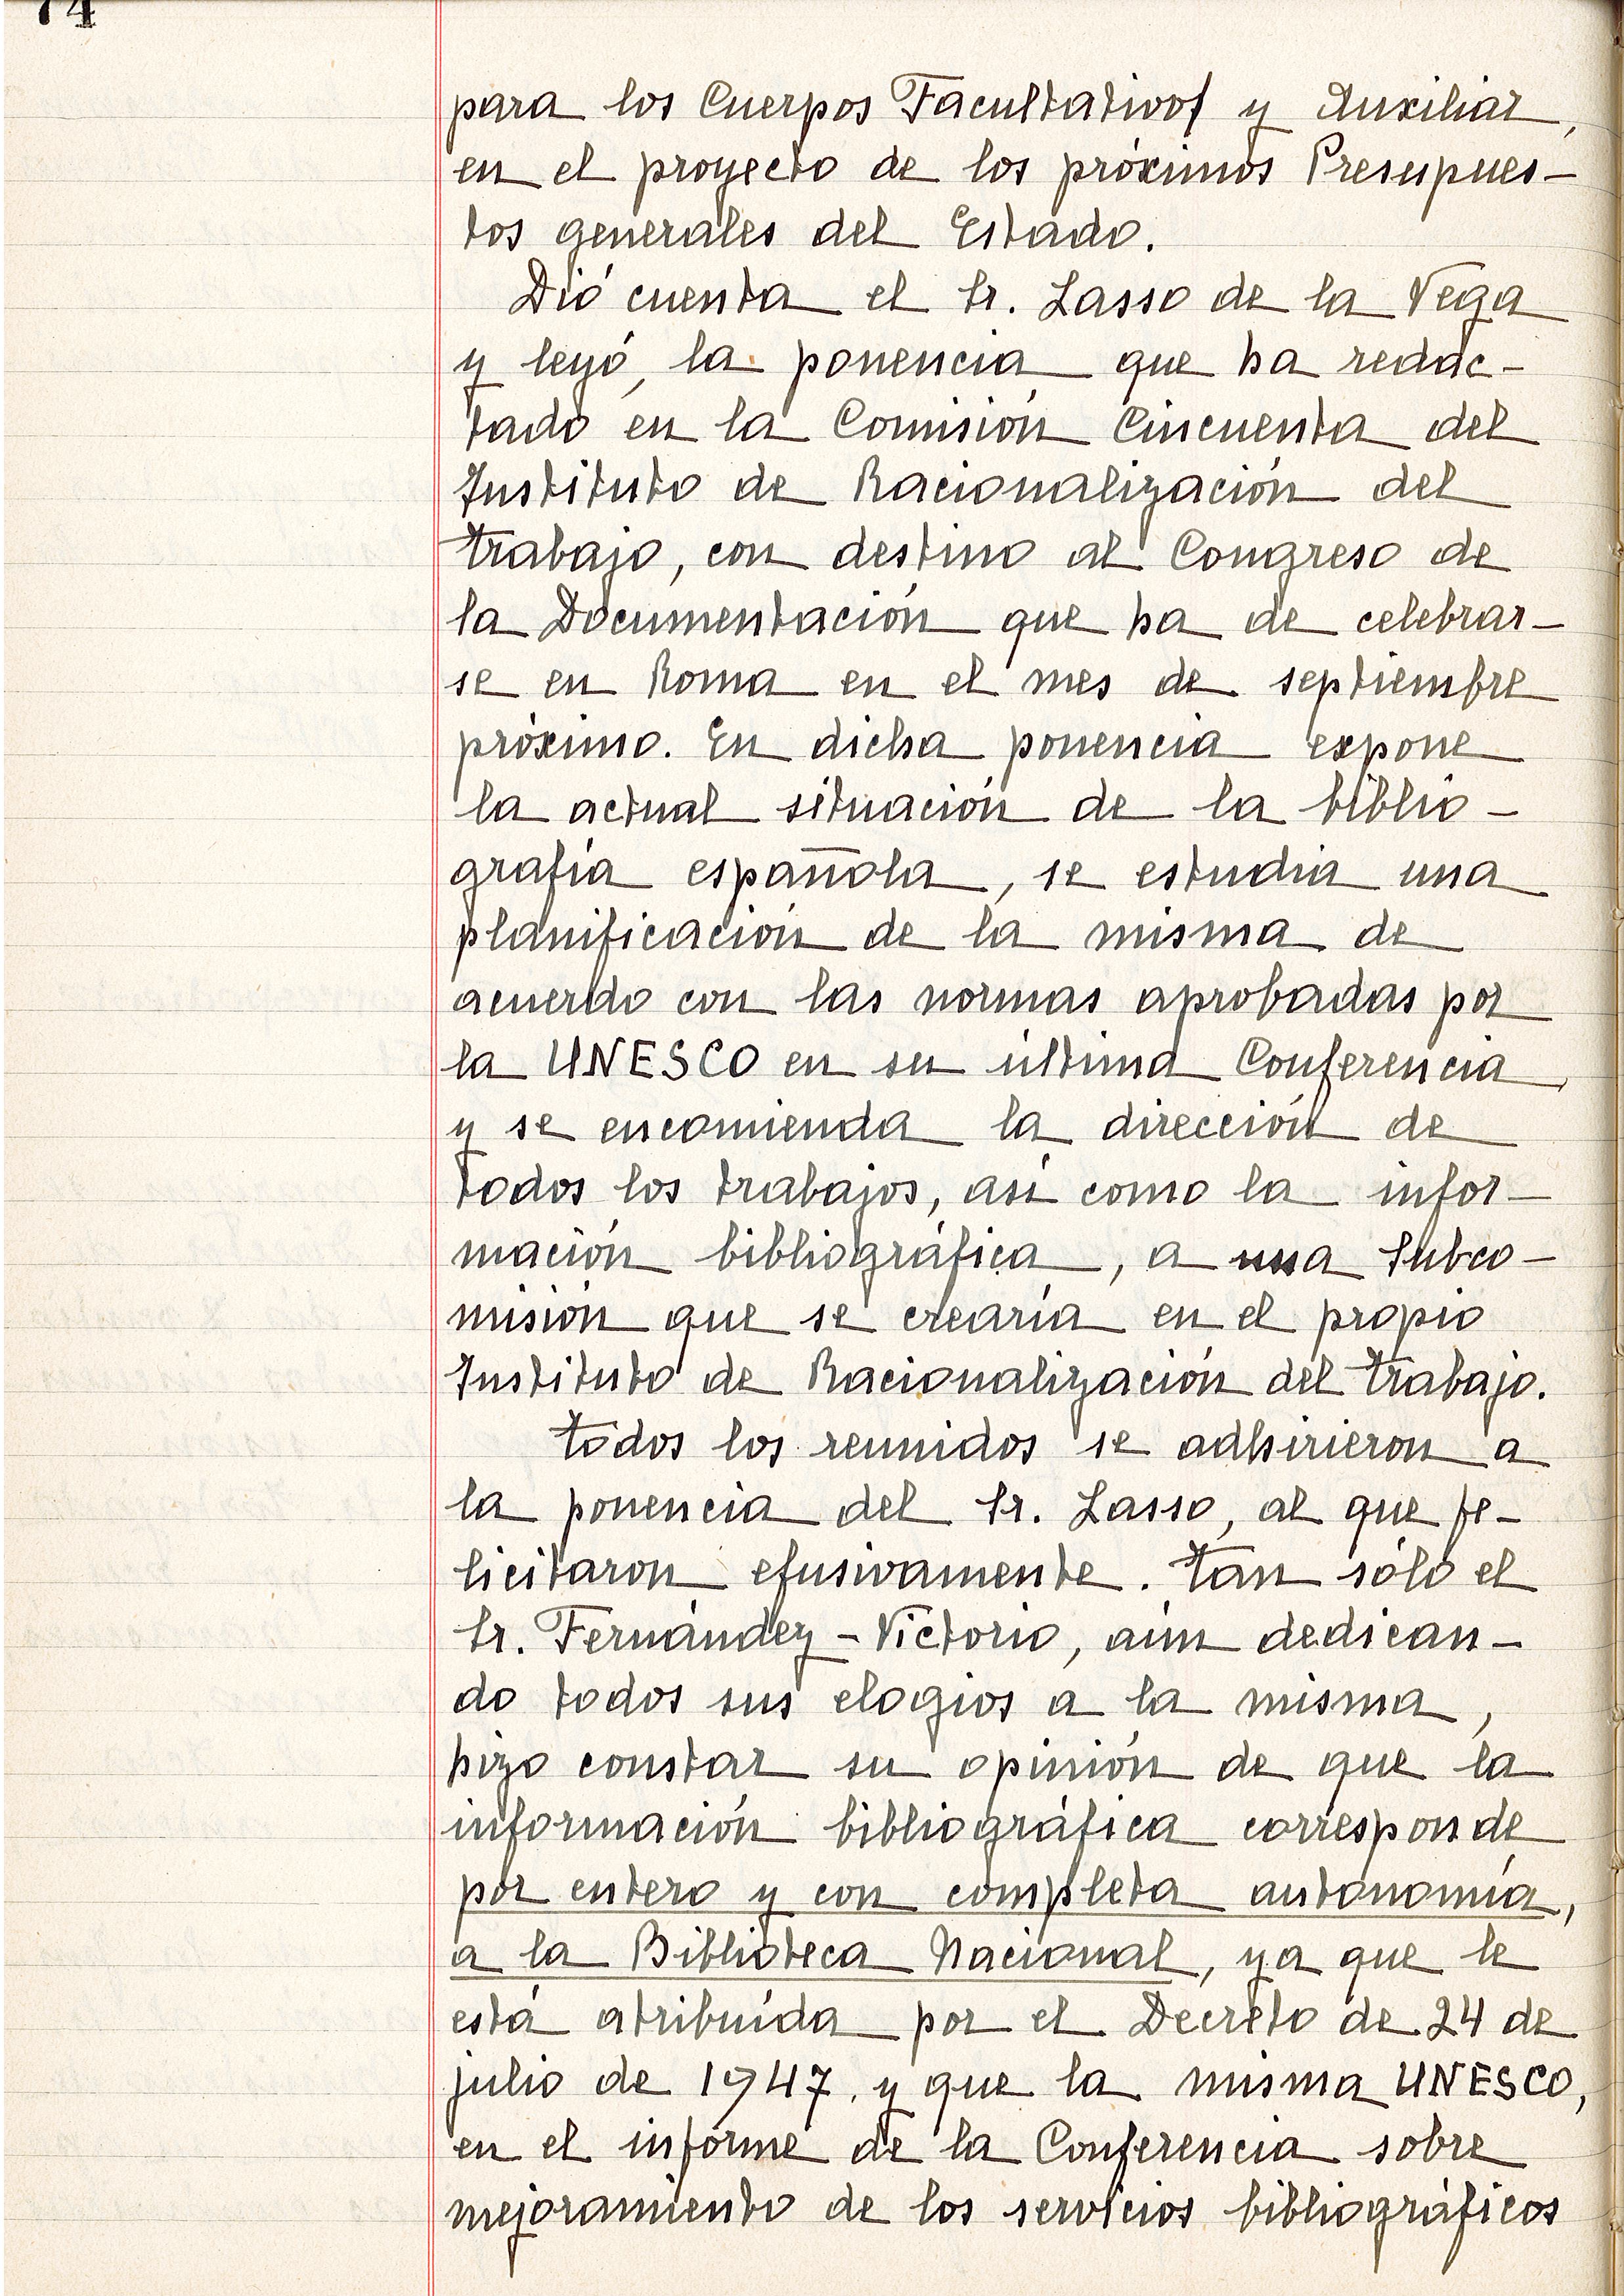 74
para los Cuerpos Facultativos y Auxiliar,
en el proyecto de los próximos Presupues-
tos generales del Estado.
Dió cuenta el Sr. Lasso de la Vega
y leyó, la ponencia que ha redac-
tado en la Comisión Cincuenta del
Instituto de Racionalización del
Trabajo, con destino al Congreso de
la Documentación que ha de celebrar-
se en Roma en el mes de septiembre
próximo. En dicha ponencia expone
la actual situación de la biblio-
grafía española, se estudia una
planificación de la misma de
acuerdo con las normas aprobadas por
la UNESCO en su última Conferencia,
y se encomienda la dirección de
todos los trabajos, así como la infor-
mación bibliográfica, a una Subco-
misión que se crearía en el propio
Instituto de Racionalización del Trabajo.
Todos los reunidos se adhirieron a
la ponencia del Sr. Lasso, al que fe-
licitaron efusivamente. Tan sólo el
Sr. Fernández-Victorio, aún dedican-
do todos sus elogios a la misma,
hizo constar su opinión de que la
información bibliográfica corresponde
por entero y con completa autonomía,
a la Biblioteca Nacional, ya que le
está atribuída por el Decreto de 24 de
julio de 1947, y que la misma UNESCO,
en el informe de la Conferencia sobre
mejoramiento de los servicios bibliográficos